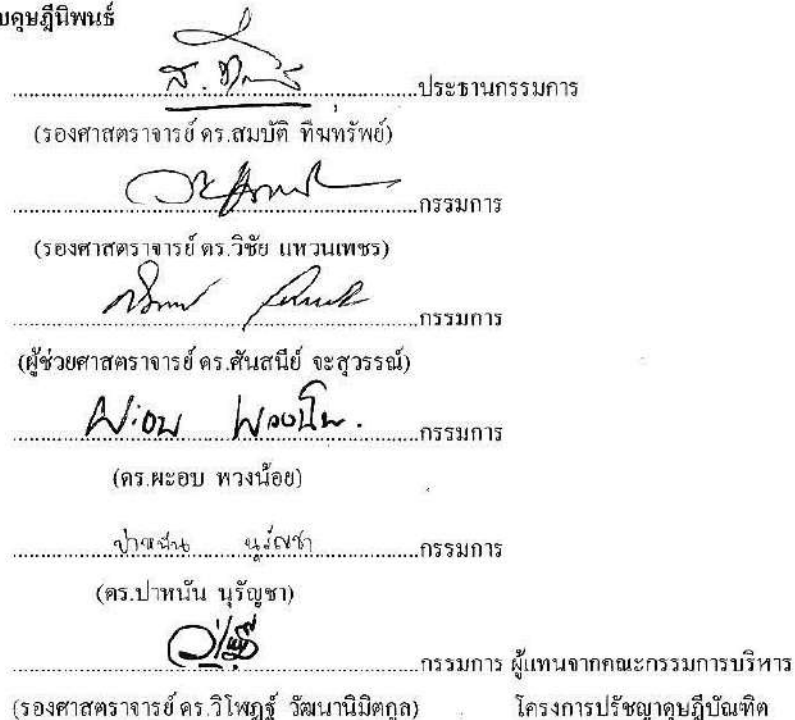 บดุษฎีนิพนธ์
ประธานกรรมการ
(รองศาสตราจารย์ ดร.สมบัติ ทีฆทรัพย์)
กรรมการ
(รองศาสตราจารย์ ดร.วิชัย แหวนเพชร)
กรรมการ
(ผู้ช่วยศาสตราจารย์ ดร.ศันสนีย์ จะสุวรรณ์)
ผะอบ พวงน้อย กรรมการ
(ดร.ผะอบ พวงน้อย)
ปาหนัน นุรัญชา กรรมการ
(ดร.ปาหนัน นุรัญชา)
กรรมการ ผู้แทนจากคณะกรรมการบริหาร
(รองศาสตราจารย์ ดร.วิโฬฏฐ์ วัฒนานิมิตกูล) โครงการปรัชญาดุษฎีบัณฑิต